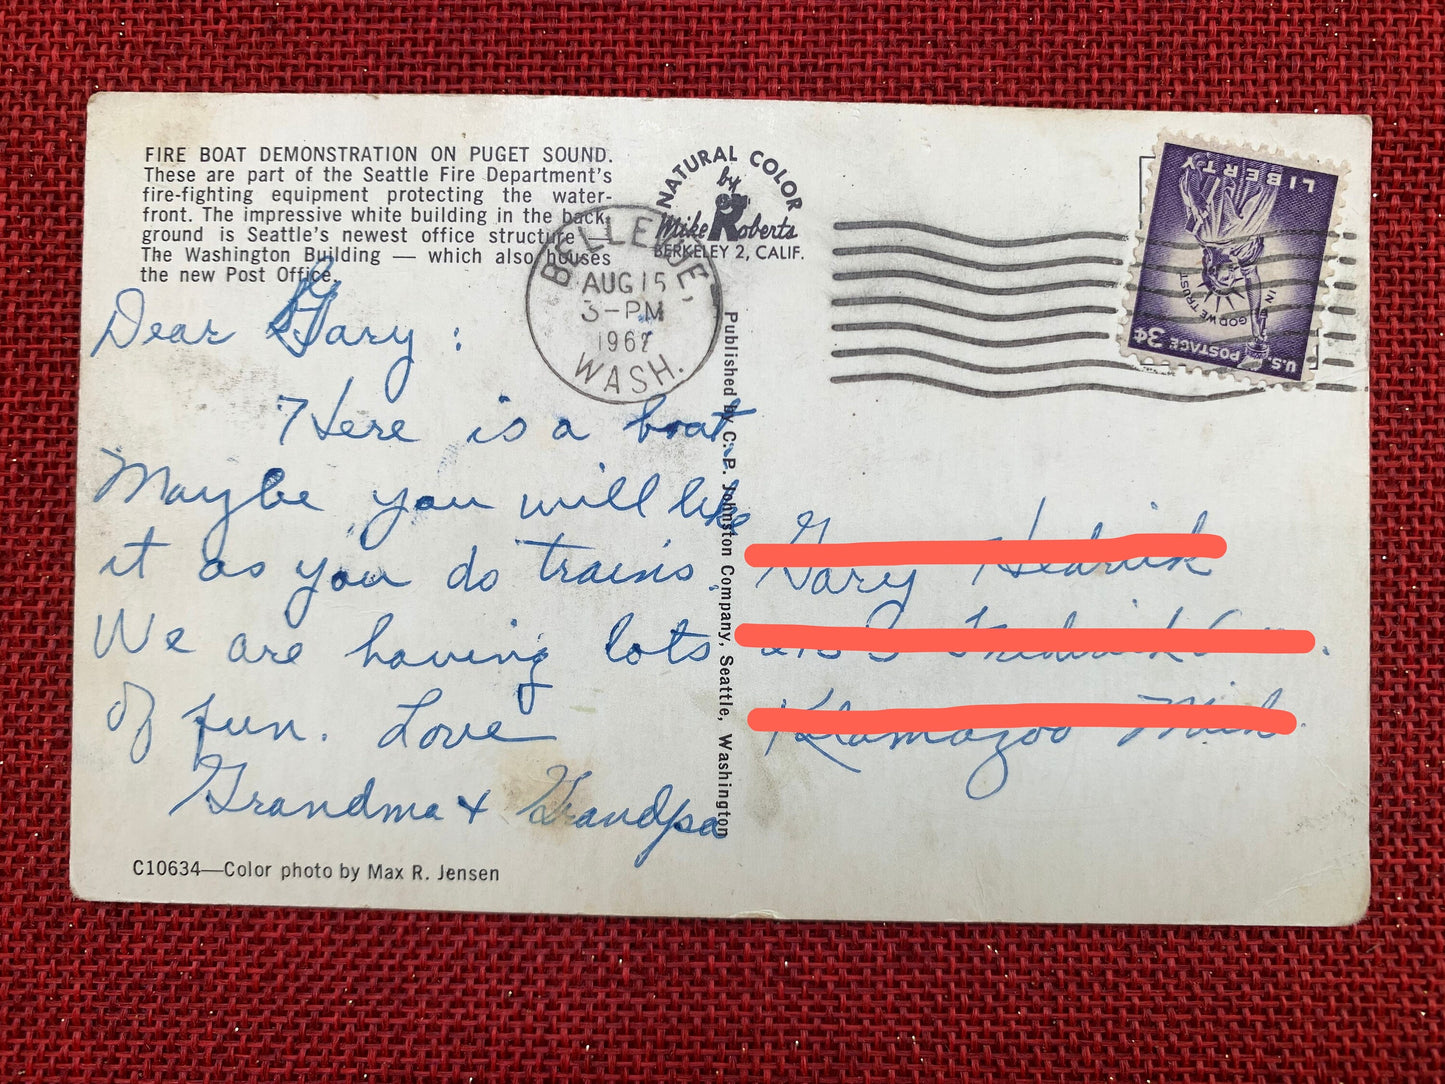 FIRE BOAT DEMONSTRATION ON PUGET SOUND.
These are part of the Seattle Fire Department's
fire-fighting equipment protecting the water-
front. The impressive white building in the back-
ground is Seattle's newest office structure —
The Washington Building — which also houses
the new Post Office.
Dear Gary :
Here is a boat
Maybe you will like
it as you do trains.
We are having lots
of fun. Love
Grandma + Grandpa
C10634—Color photo by Max R. Jensen
NATURAL COLOR
by
Mike Roberts
BERKELEY 2, CALIF.
BELLEVUE,
AUG 15
3-PM
WASH.
Published by C. P. Johnston Company, Seattle, Washington
LIBERTY
IN GOD WE TRUST
U.S. POSTAGE 3¢